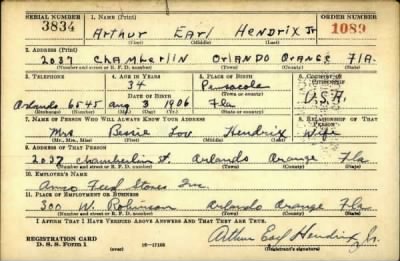 SERIAL NUMBER 1. NAME (Print) ORDER NUMBER
3834 Arthur Earl Hendrix Jr 1089
(First) (Middle) (Last)
2. ADDRESS (Print)
2037 Chamberlin Orlando Orange Fla.
(Number and street or R. F. D. number) (Town) (County) (State)
3. TELEPHONE 4. AGE IN YEARS 5. PLACE OF BIRTH 6. COUNTRY OF CITIZENSHIP
34 Pensacola
DATE OF BIRTH (Town or county)
Orlando 6545 Aug 3 1906 Fla U.S.A.
(Exchange) (Number) (Mo.) (Day) (Yr.) (State or country)
7. NAME OF PERSON WHO WILL ALWAYS KNOW YOUR ADDRESS 8. RELATIONSHIP OF THAT PERSON
Mrs Bessie Lou Hendrix Wife
(Mr., Mrs., Miss) (First) (Middle) (Last)
9. ADDRESS OF THAT PERSON
2037 Chamberlin St. Orlando Orange Fla
(Number and street or R. F. D. number) (Town) (County) (State)
10. EMPLOYER'S NAME
Feed Stores Inc.
11. PLACE OF EMPLOYMENT OR BUSINESS
300 W. Robinson Orlando Orange Fla.
(Number and street or R. F. D. number) (Town) (County) (State)
I AFFIRM THAT I HAVE VERIFIED ABOVE ANSWERS AND THAT THEY ARE TRUE.
REGISTRATION CARD Arthur Earl Hendrix Jr.
D. S. S. Form 1 (over) (Registrant's signature)